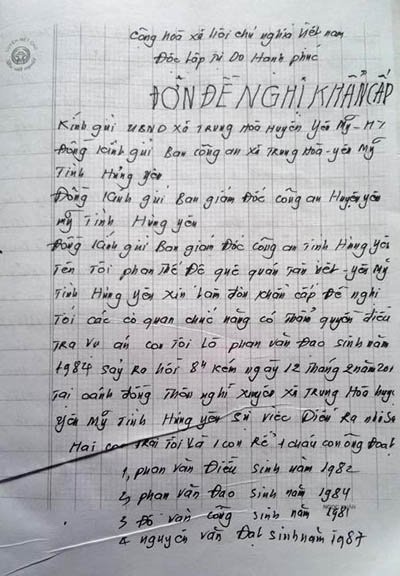 Cộng hoà xã hội chủ nghĩa Việt nam
Độc lập Tự Do Hạnh phúc
ĐƠN ĐỀ NGHỊ KHẨN CẤP
Kính gửi UBND Xã TRung Hoà Huyện Yên Mỹ - HY
Đồng Kính gửi Ban công an Xã TRung Hoà - yên Mỹ
Tỉnh Hưng yên
Đồng Kính gửi Ban giám Đốc công an Huyện yên
mỹ Tỉnh Hưng yên
Đồng Kính gửi Ban giám Đốc công an Tỉnh Hưng yên
Tên Tôi phan Thế Đề quê quán Tân Việt - yên Mỹ
Tỉnh Hưng yên Xin làm đơn khẩn cấp Đề nghị
Tới các cơ quan chức năng có Thẩm quyền điều
TRa vụ án con Tôi Là phan văn Đao sinh năm
1984 sảy Ra hồi 8h kém ngày 12 Tháng 2 năm 201
Tại cánh đồng Thôn nghĩ Xuyên Xã TRung Hoà huyệ
yên Mỹ Tỉnh Hưng yên Sự việc Diễn Ra như Sa
Hai con TRai Tôi và 1 con Rể 1 cháu con ông Đoạt
1, phan văn Điều sinh năm 1982
2, phan văn Đao sinh năm 1984
3 Đỗ văn công sinh năm 1981
4 nguyễn văn Đạt sinh năm 1987